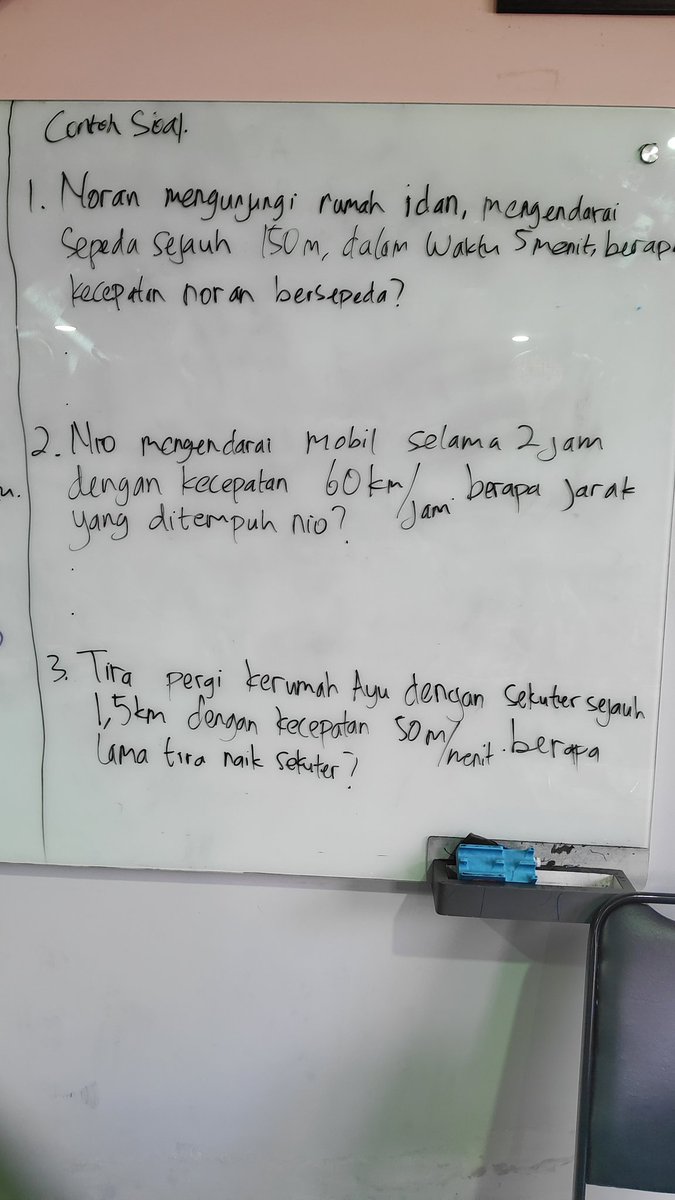 Contoh Soal.
1. Noran mengunjungi rumah idan, mengendarai
sepeda sejauh 150m, dalam waktu 5 menit, berap
kecepatan noran bersepeda?
2. Nio mengendarai mobil selama 2 jam
dengan kecepatan 60 km/jam. berapa jarak
yang ditempuh nio?
3. Tira pergi kerumah Ayu dengan sekuter sejauh
1,5 km dengan kecepatan 50 m/menit. berapa
lama tira naik sekuter?